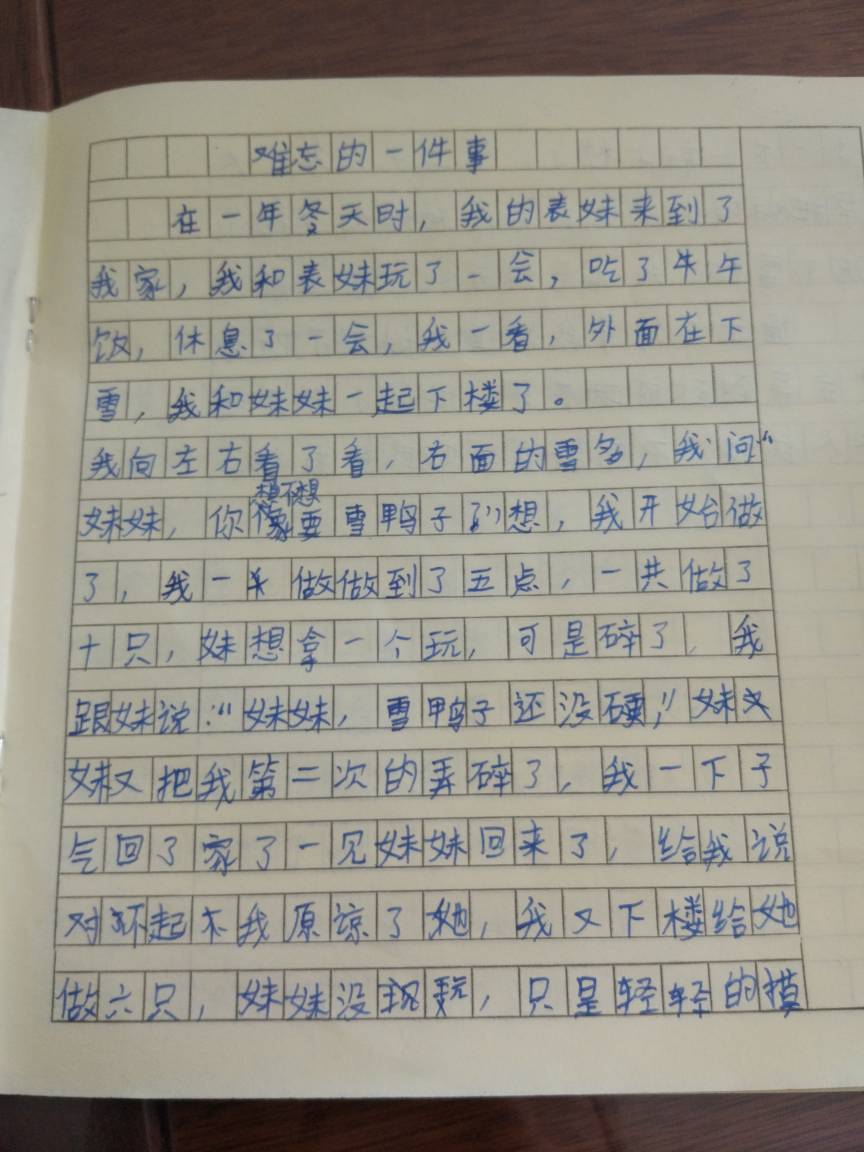 难忘的一件事
在一年冬天时，我的表妹来到了
我家，我和表妹玩了一会，吃了牛午
饭，休息了一会，我一看，外面在下
雪，我和妹妹一起下楼了。
我向左右看了看，右面的雪多，我问“
想不想
妹妹，你像要雪鸭子”想，我开始做
了，我一做做到了五点，一共做了
十只，妹想拿一个玩，可是碎了，我
跟妹说：“妹妹，雪鸭子还没硬，”妹又
妹又把我第二次的弄碎了，我一下子
气回了家了一见妹妹回来了，给我说
对环起不我原谅了她，我又下楼给她
做六只，妹妹没玩，只是轻轻的摸